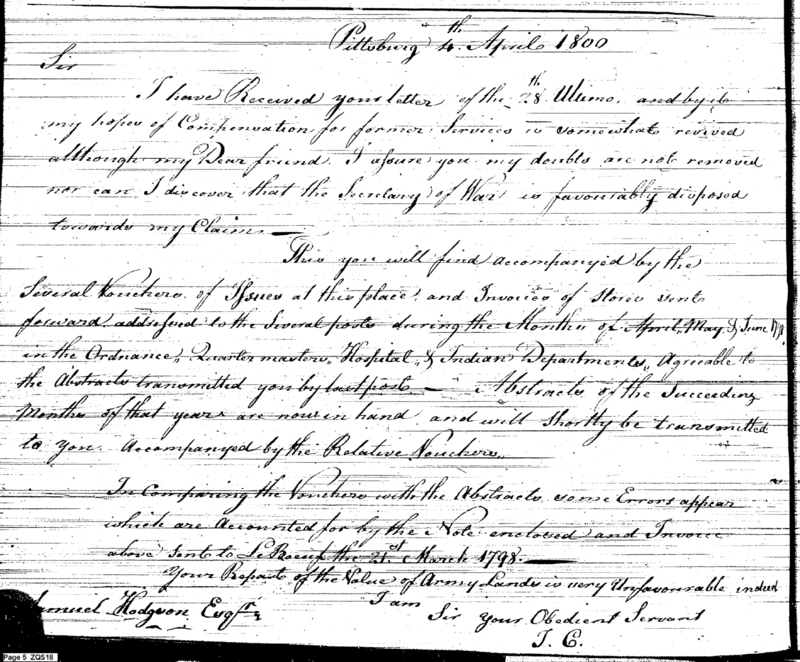 Pittsburg 4th April 1800
Sir
I have Received your letter of the 28th Ultimo, and by it
my hopes of Compensation for former Services is somewhat revived
although my Dear friend I assure you my doubts are not removed
nor can I discover that the Secretary of War is favourably disposed
towards my Claim —
This you will find accompanyed by the
Several Vouchers of Issues at this place and Invoices of stores sent
forward addressed to the Several posts during the Months of April, May, & June 179
in the Ordnance, Quarter masters, Hospital, & Indian Departments, Agreable to
the Abstracts transmitted you by last post — Abstracts of the Succeeding
Months of that year are now in hand and will Shortly be transmitted
to you Accompanyed by the Relative Vouchers,
In Comparing the Vouchers with the Abstracts some Errors appear
which are Accounted for by the Note enclosed and Invoice
above sent to LeBoeuf the 21st March 1798 —
Your Report of the Value of Army Lands is very Unfavourable indeed
I am
Samuel Hodgson Esqr
Sir your Obedient Servant
I. C.
Page 5 ZQS18